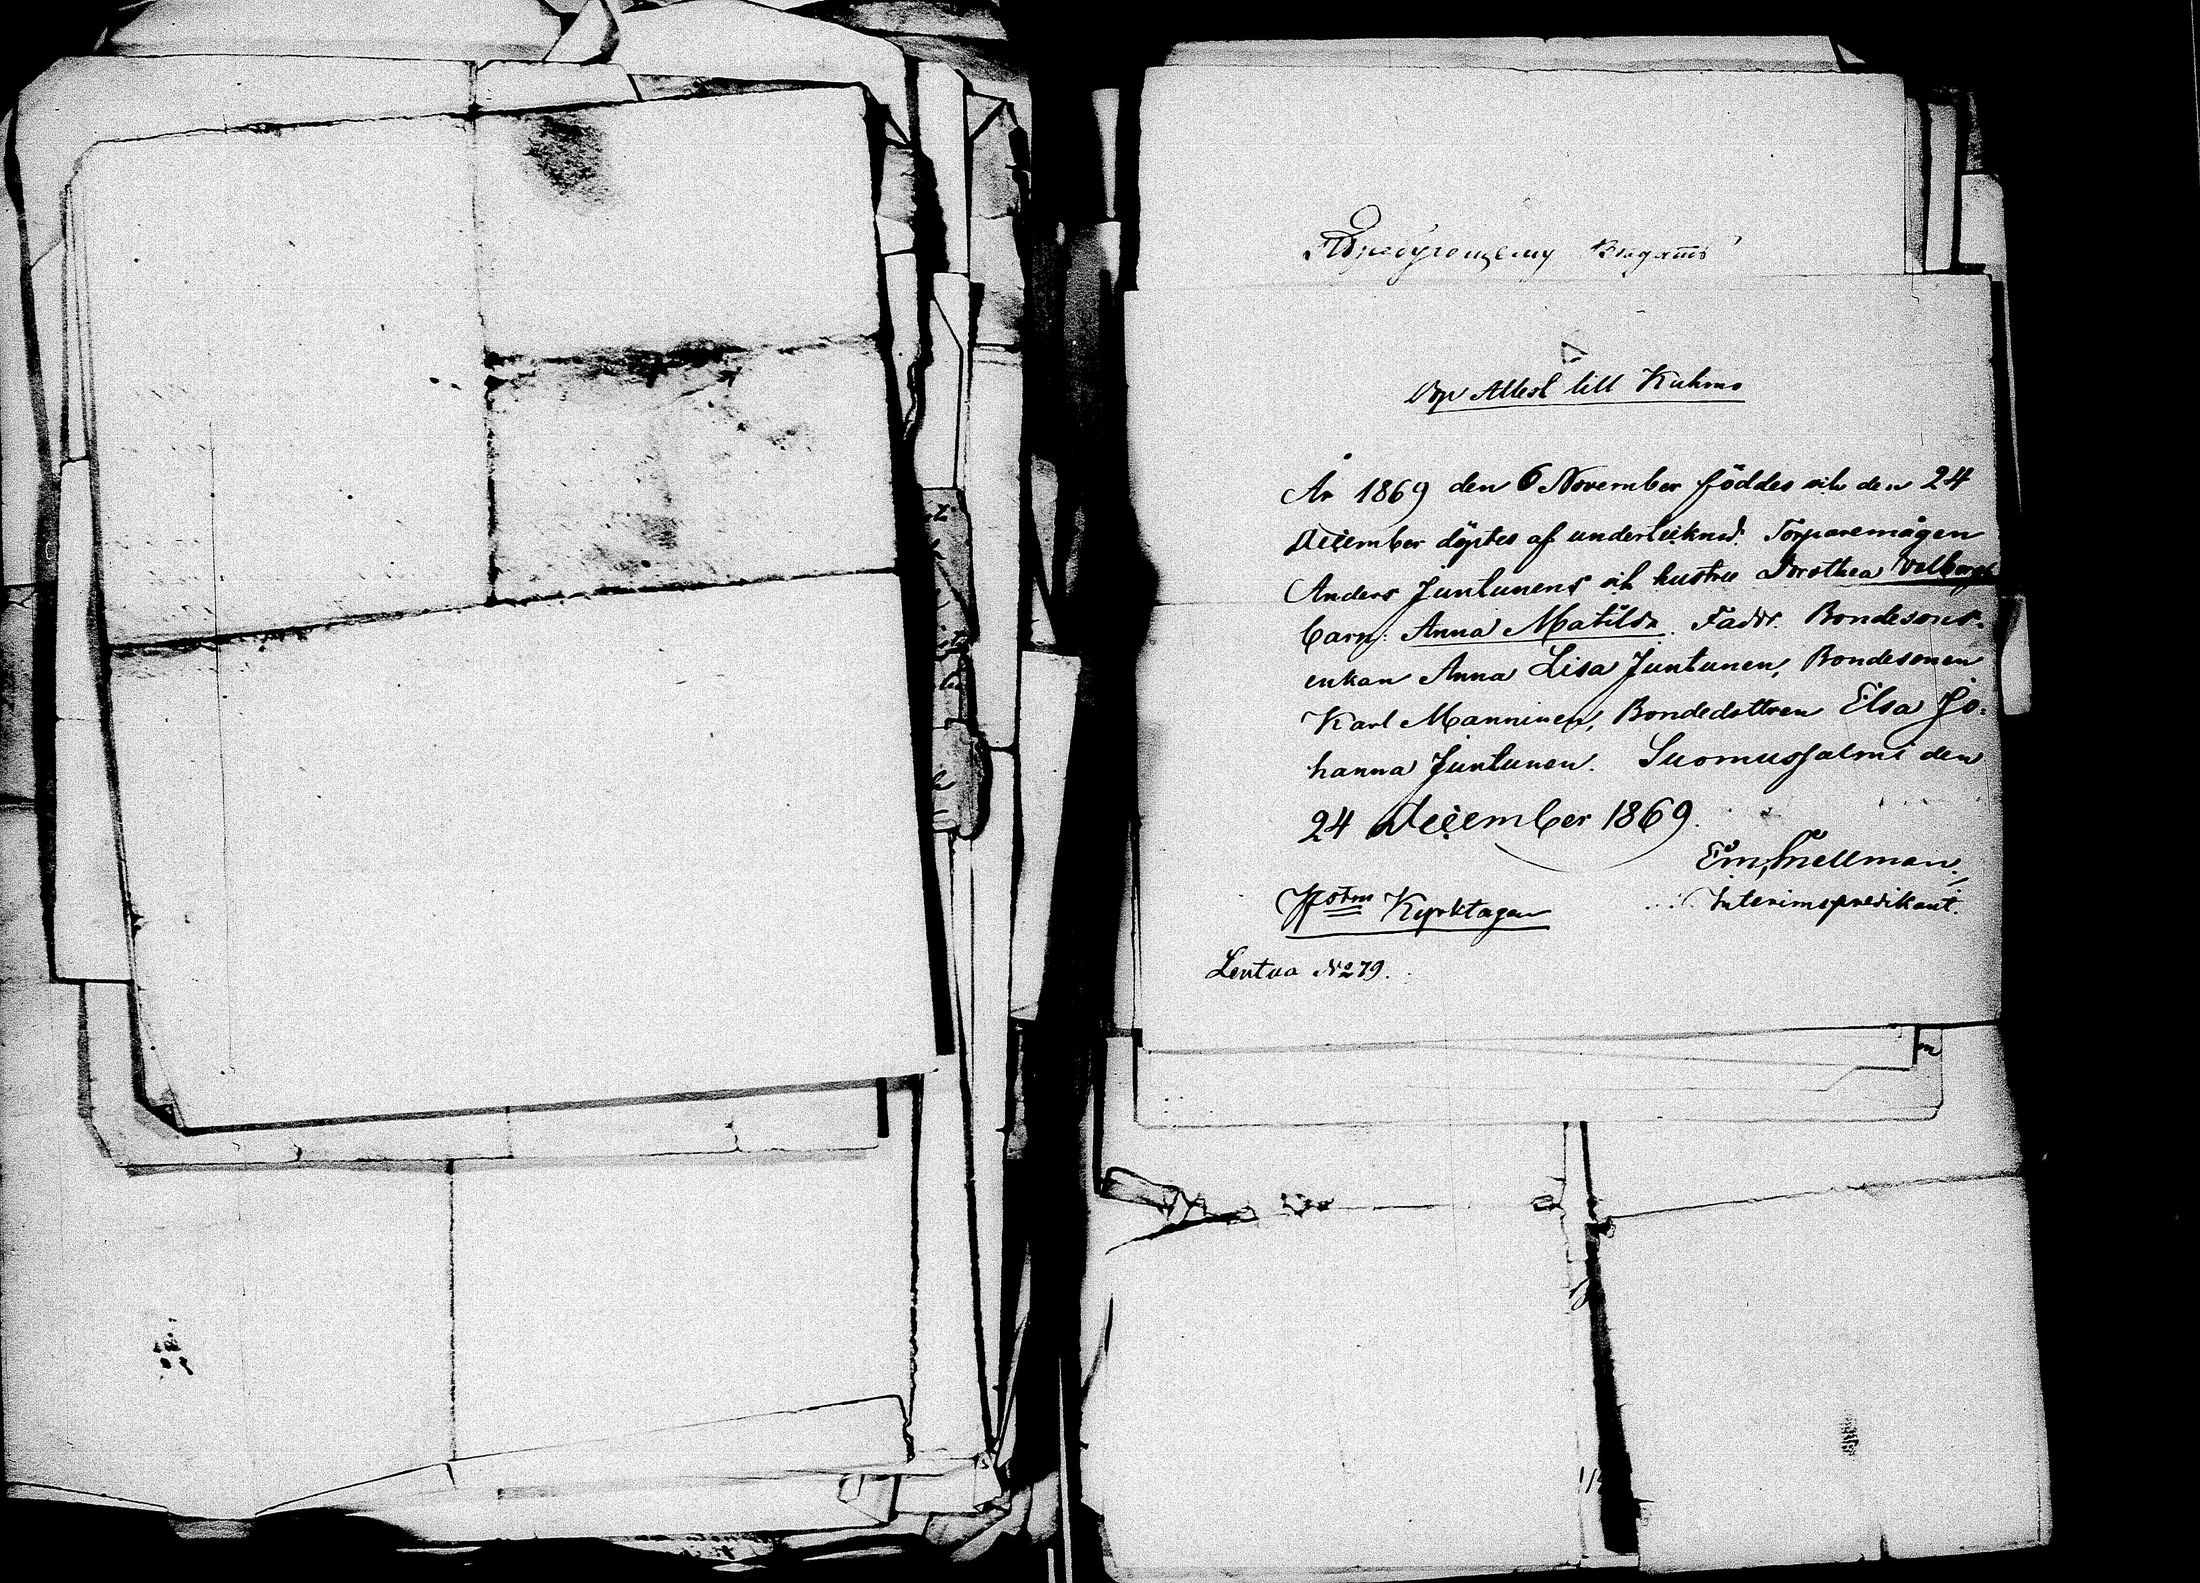 Dop Attest till Kuhmo
År 1869 den 6 November föddes och den 24
December döptes af undertecknad Torparemågen
Anders Juntunens och hustru Dorothea
barn: Anna Matilda. Faddr. Bondesons-
enkan Anna Lisa Juntunen, Bondesonen
Karl Manninen, Bondedottren Elsa Jo-
hanna Juntunen. Suomussalmi den
24 December 1869.
Em, Snellman,
Interimspredikant.
Kyrktagen
Lentua No 79.